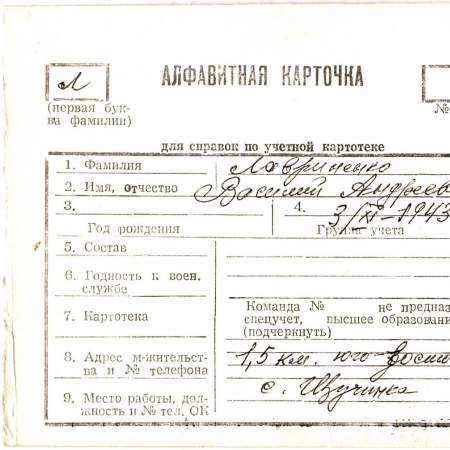 Л
АЛФАВИТНАЯ КАРТОЧКА
(первая бук-
ва фамилии)
№
для справок по учетной картотеке
1. Фамилия Лавриненко
2. Имя, отчество Василий Андреев
3. 4. 3/XI-1943
Год рождения Группа учета
5. Состав
6. Годность к воен.
службе
7. Картотека
Команда № не предназ
спецучет, высшее образовани
(подчеркнуть)
8. Адрес м-жительст-
ва и № телефона
1,5 км. юго-Восто
с.
9. Место работы, дол-
жность и № тел. ОК